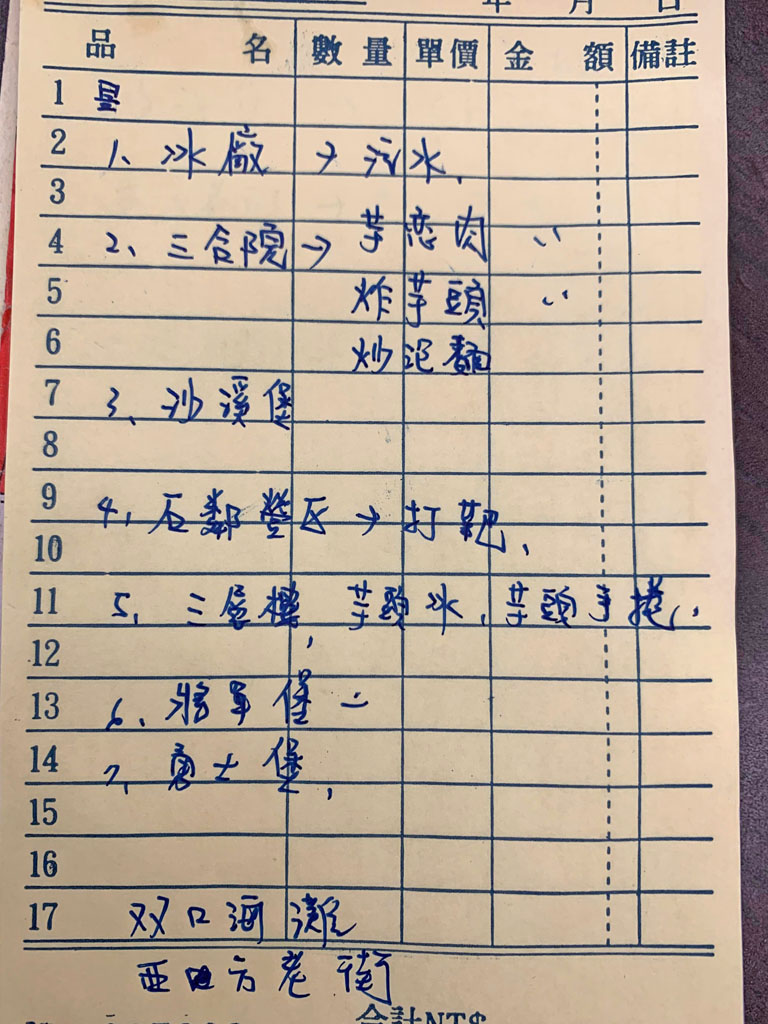 年 月 日
品 名 數量 單價 金 額 備註
1
2 1、冰廠 → 汽水、
3
4 2、三合院 → 芋恋肉
5 炸芋頭
6 炒泡麵
7 3、沙溪堡
8
9 4、后鄰營区 → 打靶、
10
11 5、三層樓、芋頭冰、芋頭手捲、
12
13 6、將軍堡
14 7、勇士堡、
15
16
17 双口海灘
西方老街
合計NT$